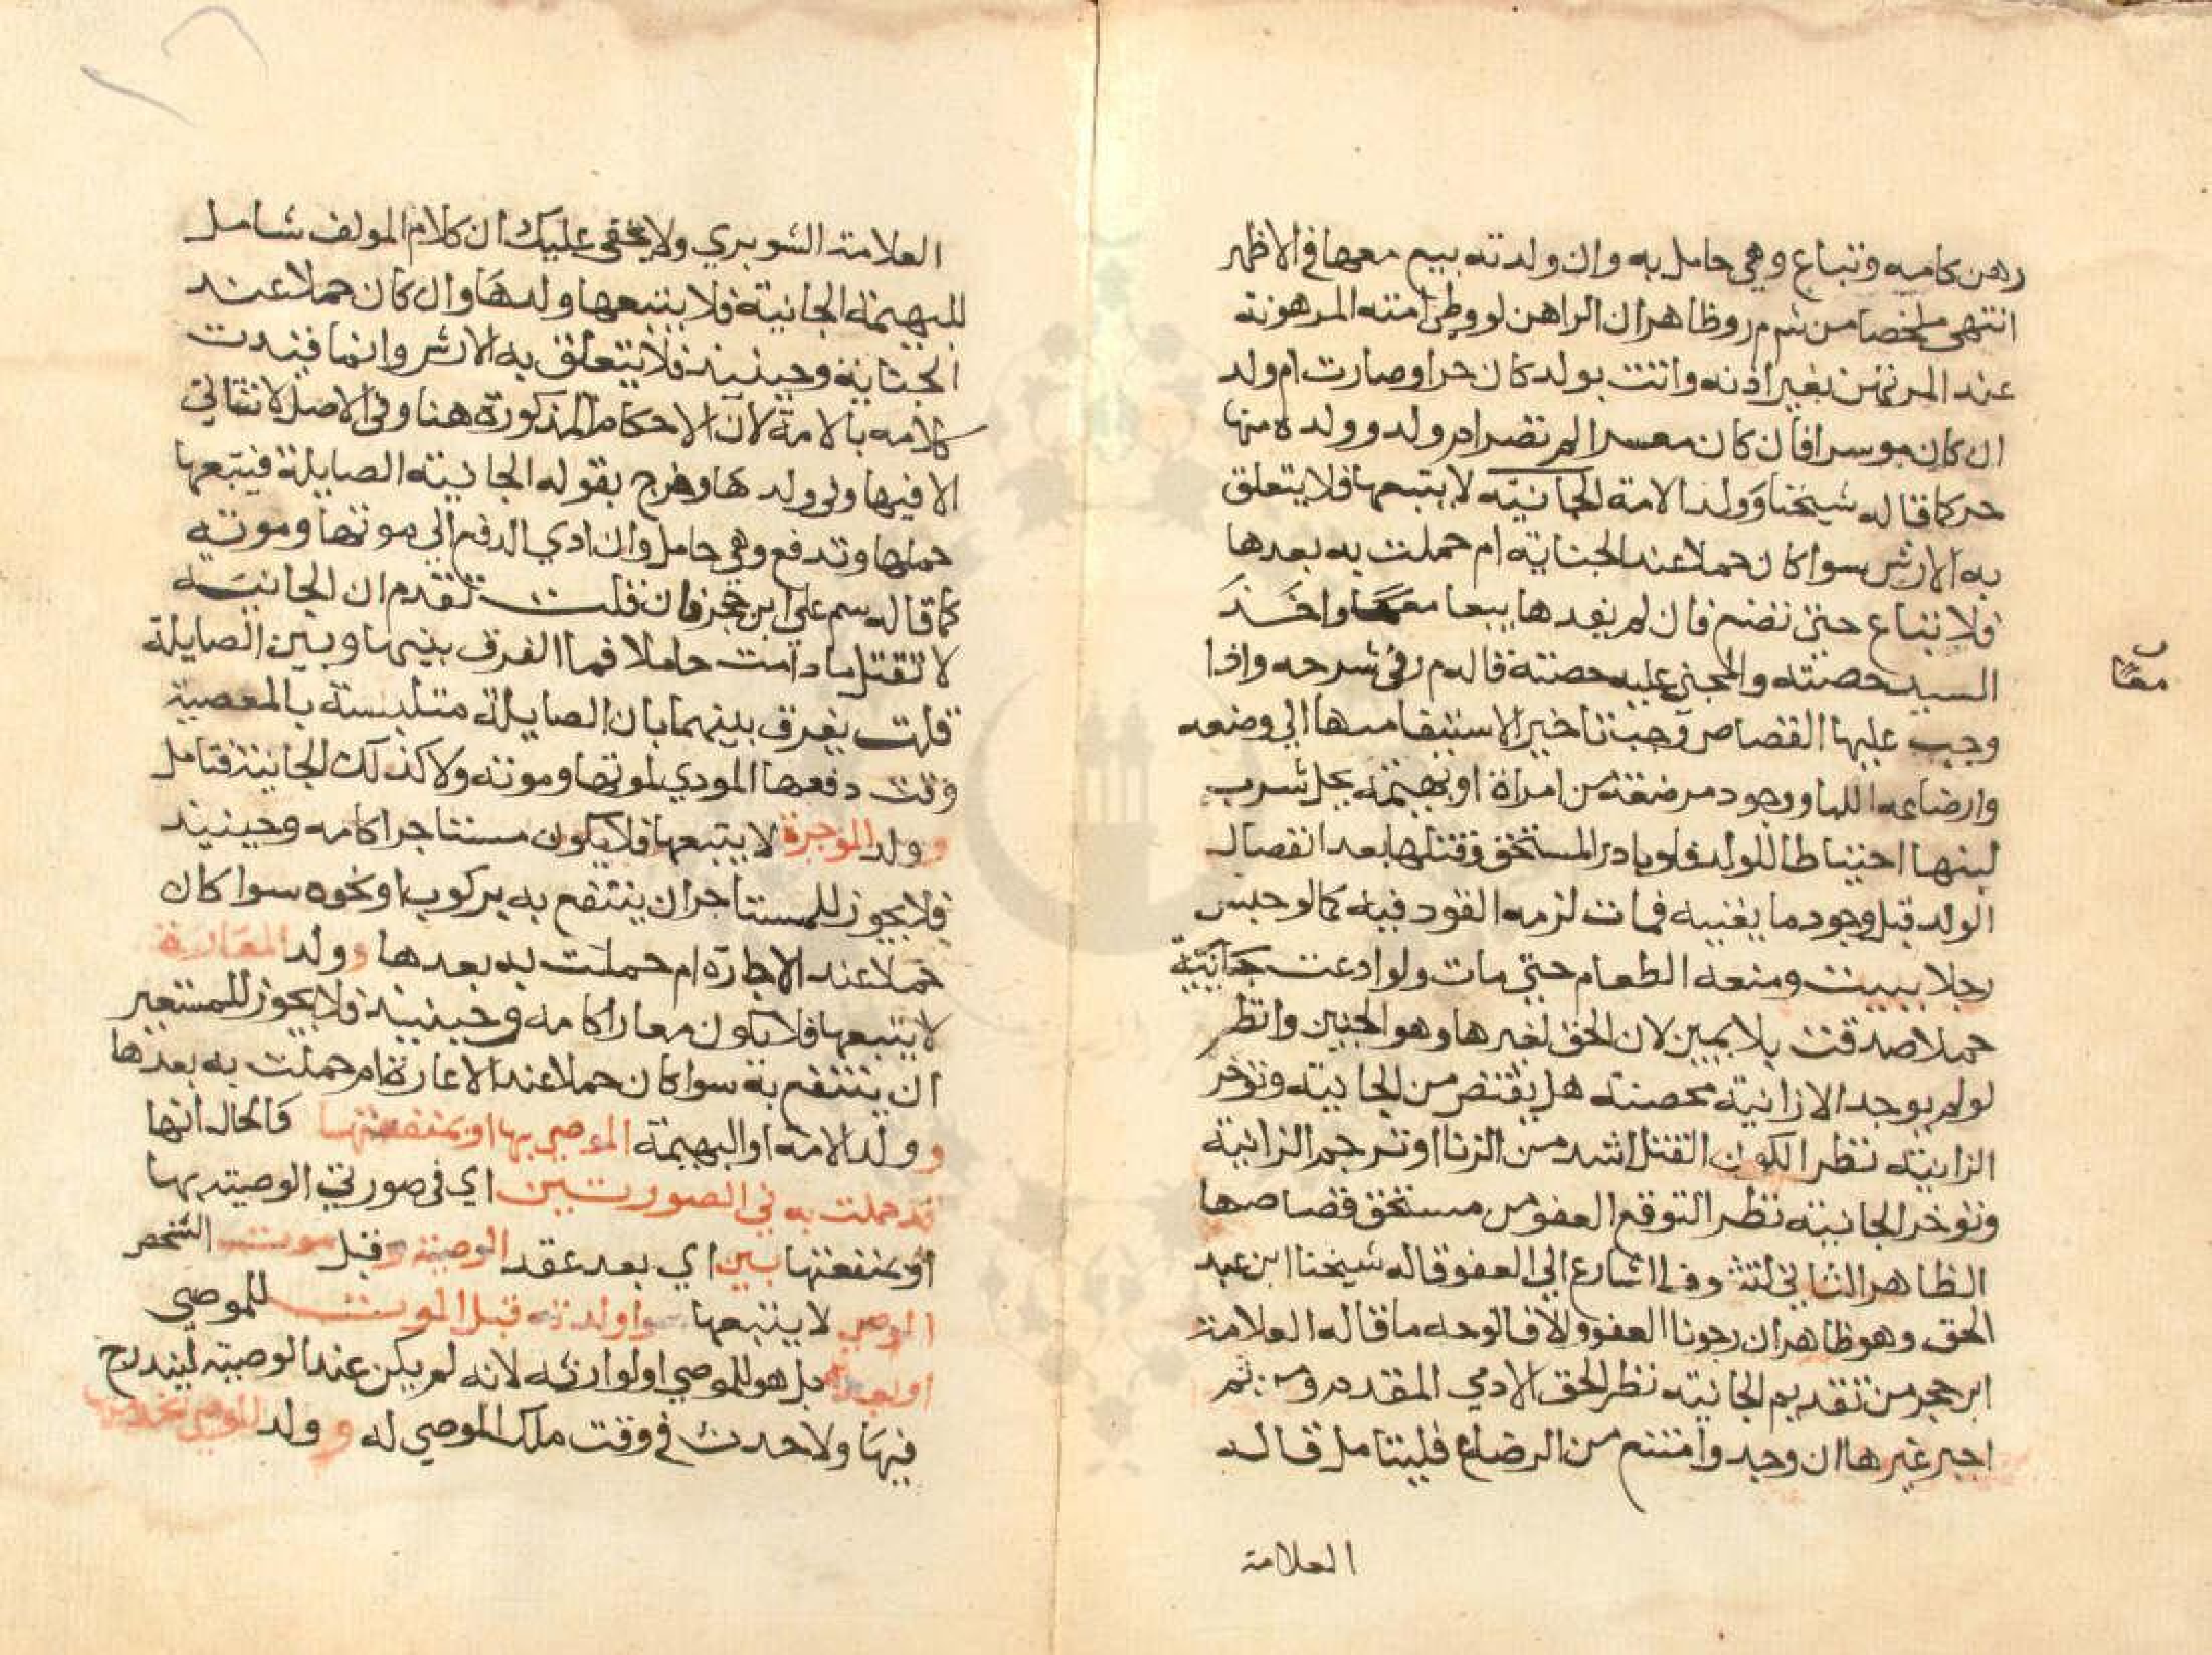 رهن كامه وتباع وهي حامل به وان ولدته بيع معها في الاظهر
انتهى ملخصا من شم م ر وظاهر ان الراهن لو وطئ امته المرهونة
عند المرتهن بغير اذنه واتت بولد كان حرا وصارت ام ولد
ان كان موسرا فان كان معسرا لم تصر ام ولد وولده منها
حر كما قاله شيخنا وولد الامة الجانية لا يتبعها فلا يتعلق
به الارش سوا كان حملا عند الجناية ام حملت به بعدها
فلا تباع حتى تضع فان لم يفدها بيعا معا واخذ
معًا
السيد حصته والمجني عليه حصته قاله م ر في شرحه واذا
وجب عليها القصاص وجب تاخير الاستيفا منها الي وضعه
وارضاعه اللبا ووجود مرضعة من امراة او بهيمة يحل شرب
لبنها احتياطا للولد فلو بادر المستحق وقتلها بعد انفصال
الولد قبل وجود ما يغنيه فمات لزمه القود فيه كما لو حبس
رجلا ببيت ومنعه الطعام حتي مات ولو ادعت جانية
حملا صدقت بلا يمين لان الحق لغيرها وهو الجنين وانظر
لو لم يوجد الا زانية محصنة هل يقتص من الجانية وتؤخر
الزانية نظرا لكون القتل اشد من الزنا او ترجم الزانية
وتوخر الجانية نظرا لتوقع العفو من مستحق قصاصها
الظاهر الثاني لتشوف الشارع الي العفو قاله شيخنا ابن عبد
الحق وهو ظاهر ان رجونا العفو والا فالوجه ما قاله العلامة
ابن حجر من تقديم الجانية نظر الحق الادمي المقدم ومن ثم
اجبر غيرها ان وجد وامتنع من الرضاع فليتامل قاله
العلامة
العلامة الشوبري ولا يخفى عليك ان كلام المولف شامل
للبهيمة الجانية فلا يتبعها ولدها وان كان حملا عند
الجناية وحينيذ فلا يتعلق به الارش وانما قيدت
كلامه بالامة لان الاحكام المذكورة هنا وفي الاصل لا تتاتي
الا فيها وفي ولدها وخرج بقوله الجانية الصايلة فيتبعها
حملها وتدفع وهي حامل وان ادي الدفع الي موتها وموته
كما قاله سم علي ابن حجر فان قلت تقدم ان الجانية
لا تقتل ما دامت حاملا فما الفرق بينها وبين الصايلة
قلت يفرق بينهما بان الصايلة متلبسة بالمعصية
وقت دفعها المودي لموتها وموته ولا كذلك الجانية فتامل
و ولد الموجرة لا يتبعها فلا يكون مستاجرا كامه وحينيذ
فلا يجوز للمستاجر ان ينتفع به بركوب او نحوه سوا كان
حملا عند الاجارة ام حملت به بعدها و ولد المعارة
لا يتبعها فلا يكون معارا كامه وحينيذ فلا يجوز للمستعير
ان ينتفع به سوا كان حملا عند الاعارة ام حملت به بعدها
و ولد الامة او البهيمة الموصي بها او بمنفعتها فالحال انها
قد حملت به في الصورتين اي في صورتي الوصية بها
او بمنفعتها بين اي بعد عقد الوصية وقبل موت الشخص
الموصي لا يتبعها سوا ولدته قبل الموت للموصي
او بعده بل هو للموصي او لوارثه لانه لم يكن عند الوصية ليندرج
فيها ولا حدث في وقت ملك الموصي له و ولد الموصي بخدمتها